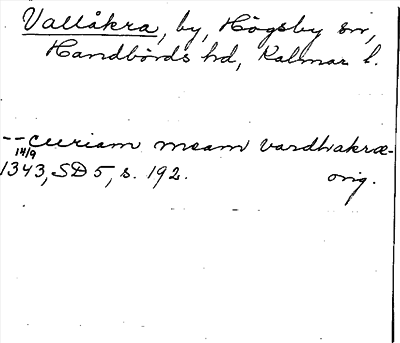 Vallåkra, by, Högsby sn,
Handbörds hd, Kalmar l.
-- curiam meam Vardhakræ-
14/9
1343, SD 5, s. 192. orig.